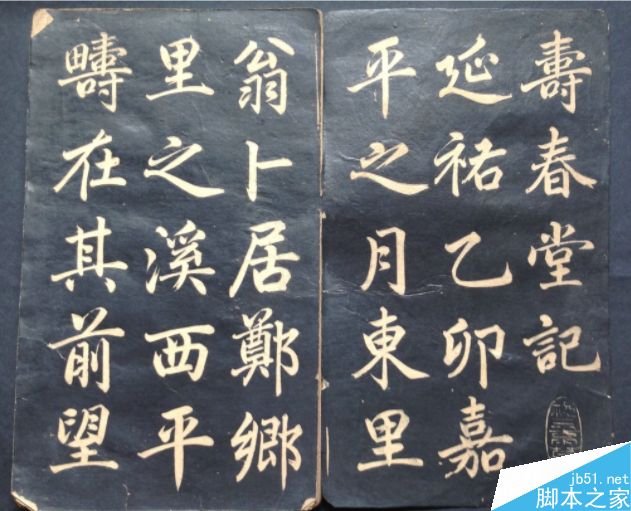 壽春堂記
延祐乙卯嘉
平之月東里
翁卜居鄭鄉
里之溪西平
疇在其前望
jb51.net
脚本之家